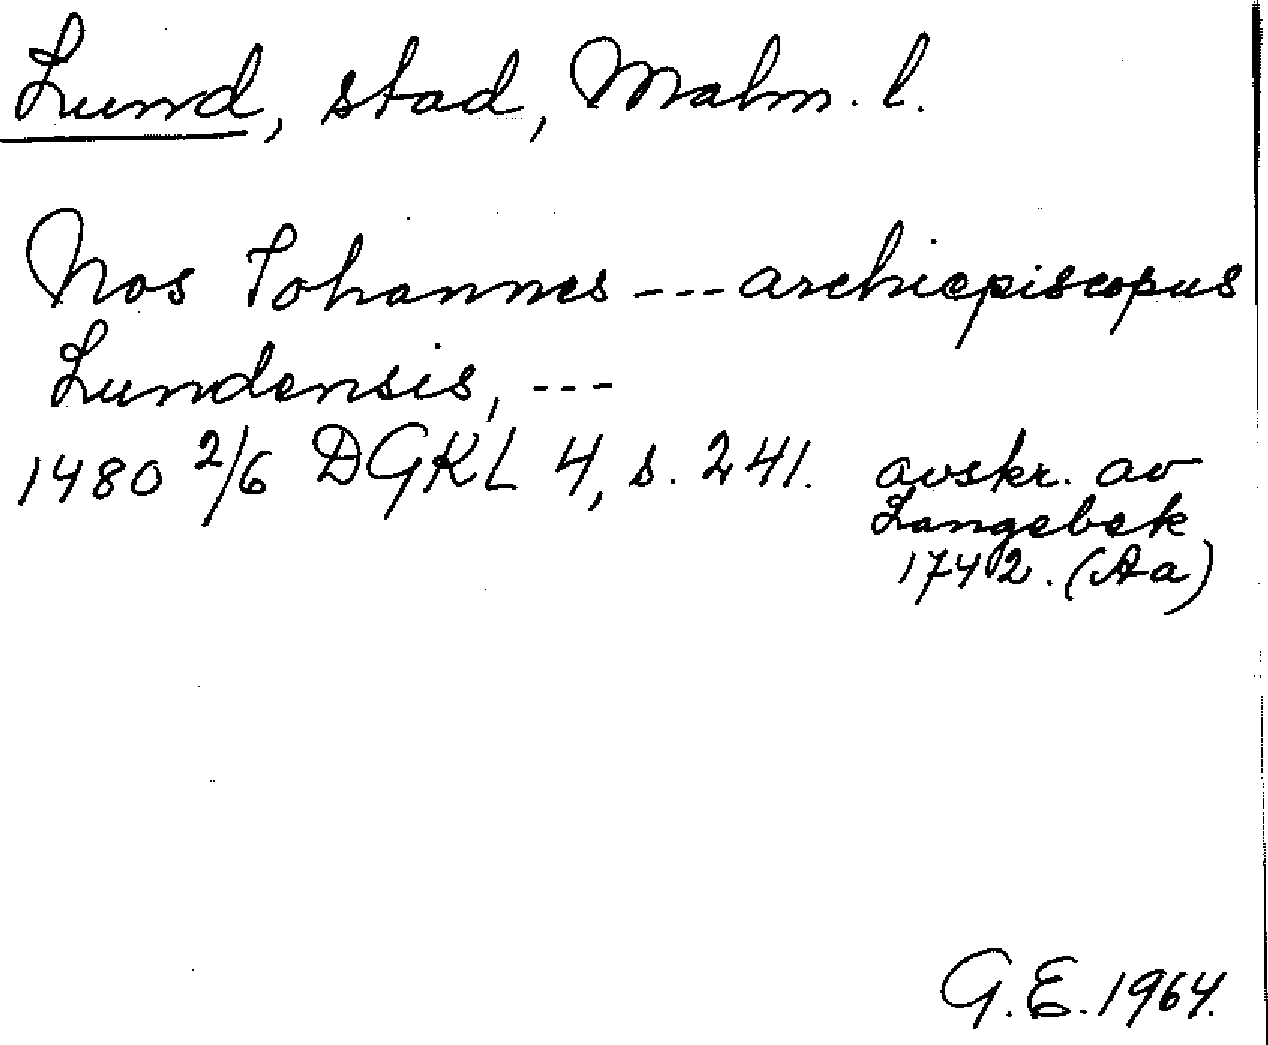 Lund, stad, Malm. l.
Nos Iohannes --- archiepiscopus
Lundensis, ---
1480 2/6 DGKL 4, s. 241. avskr. av
Langebek
1742. (Aa)
G.E. 1964.